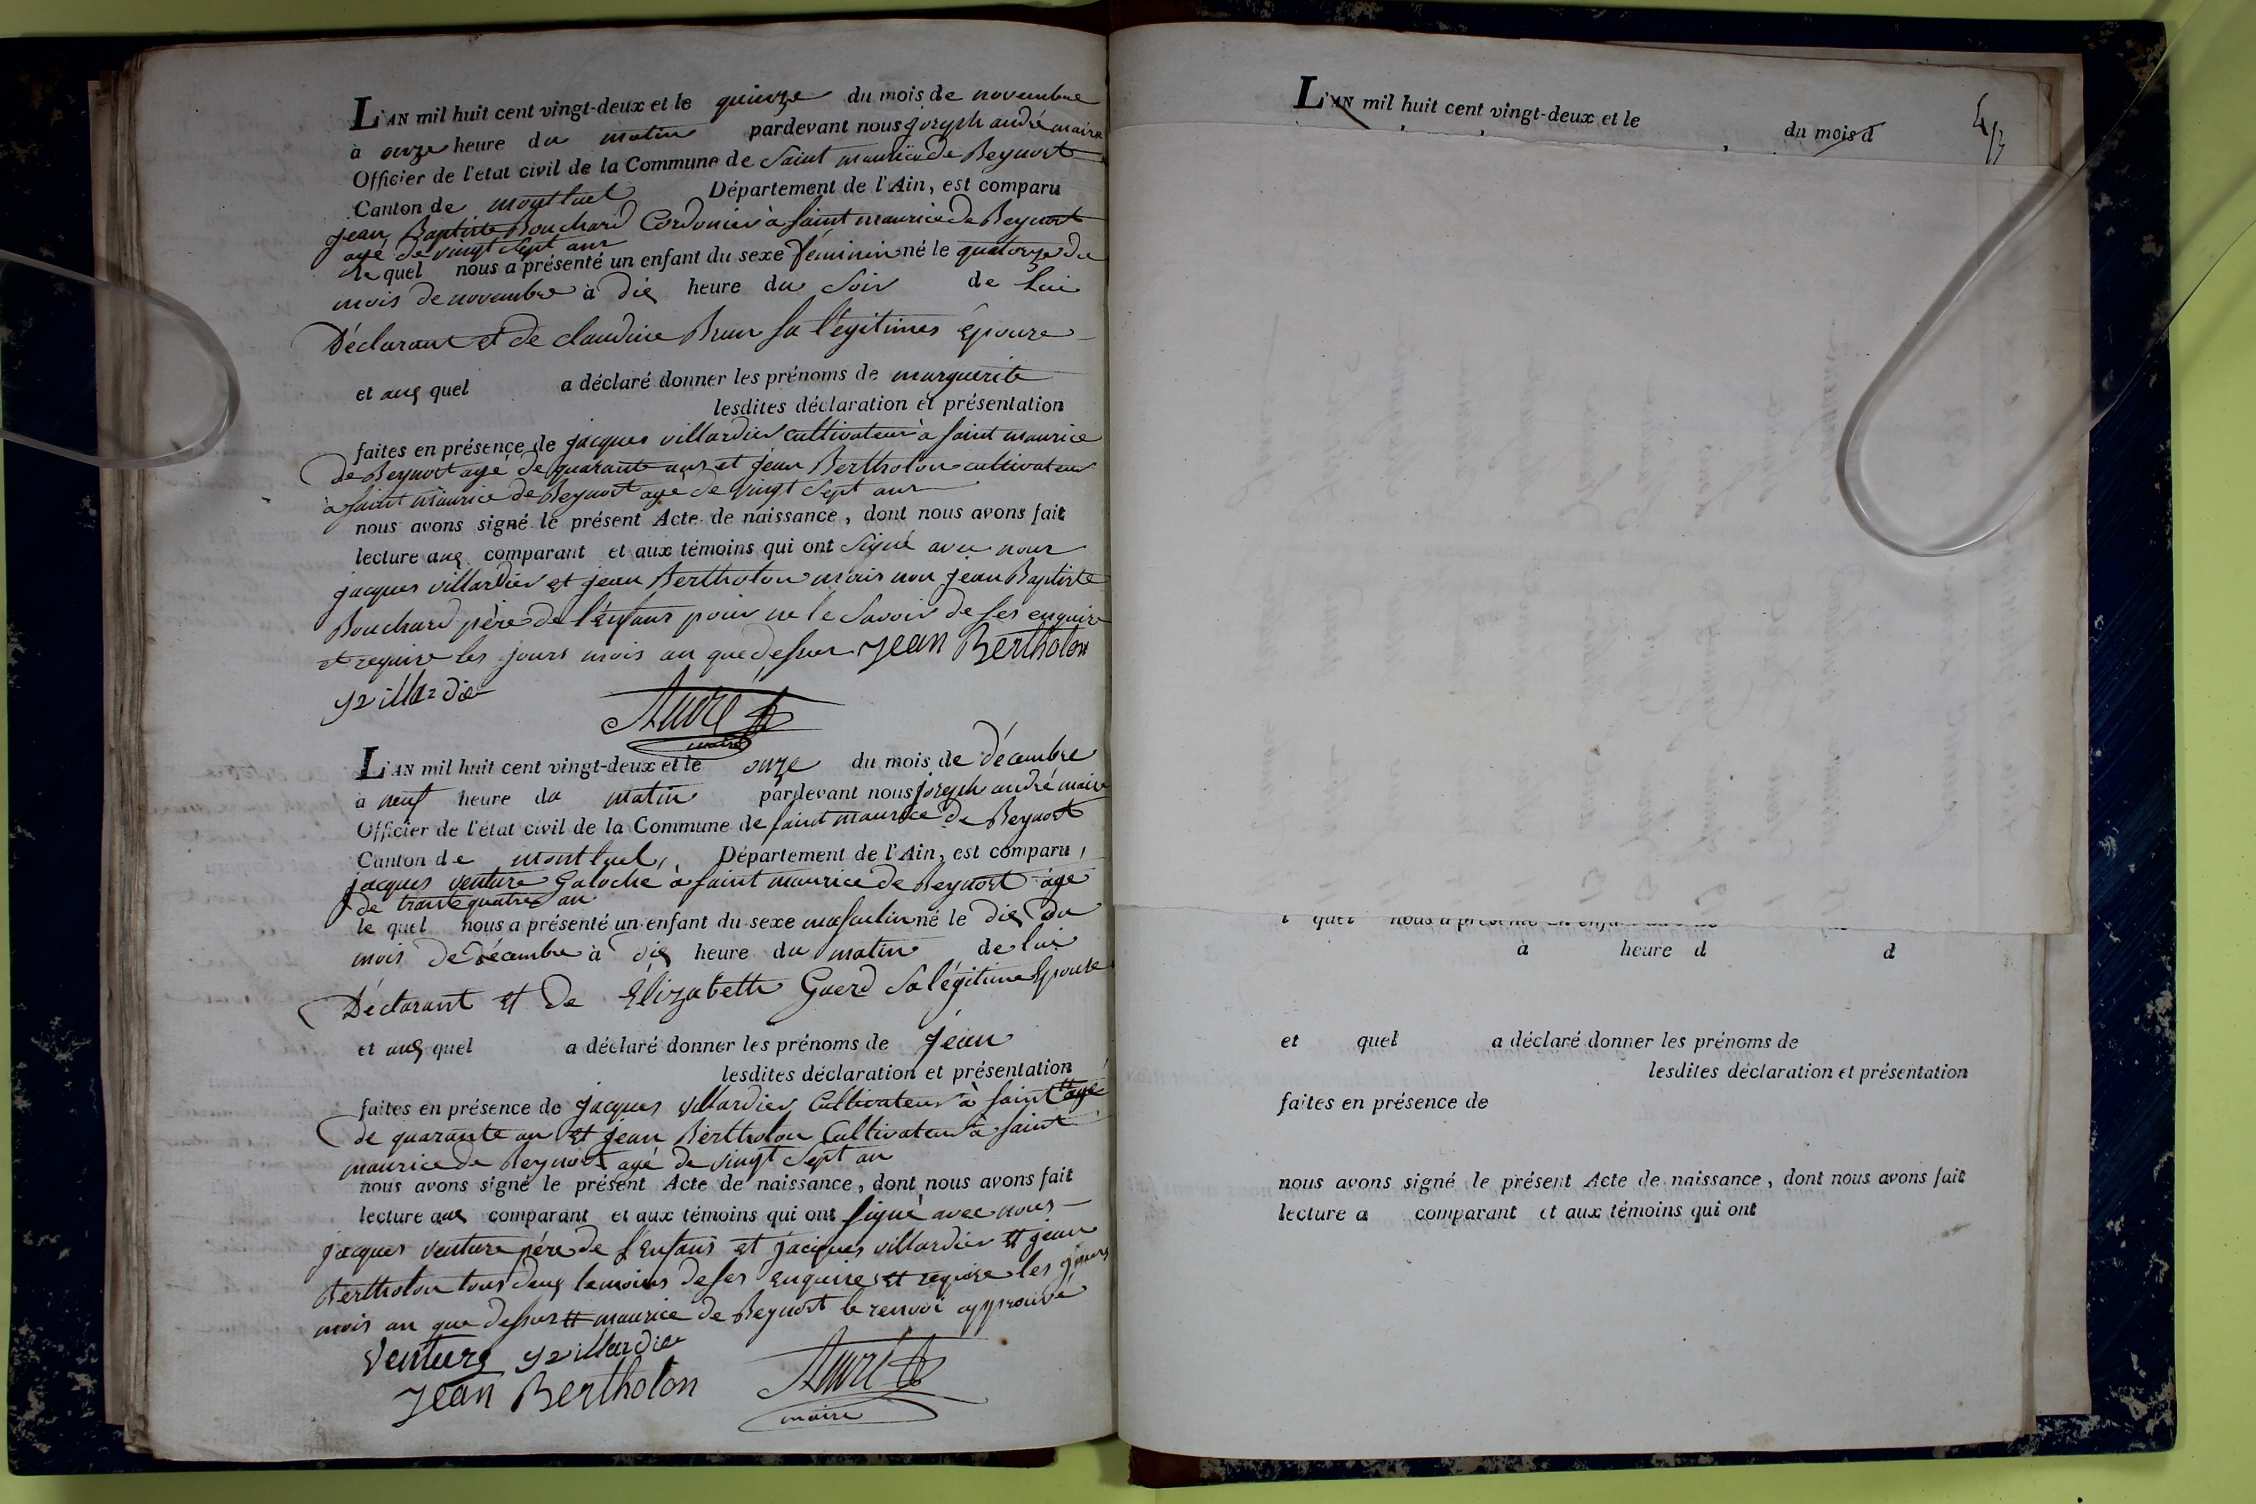 L'AN mil huit cent vingt-deux et le quinze du mois de novembre
à onze heure du matin pardevant nous joseph andré maire
Officier de l'état civil de la Commune de Saint maurice de Beynost
Canton de montluel Département de l'Ain, est comparu
jean Baptiste Bouchard Cordonier à saint maurice de Beynost
agé de vingt sept ans
le quel nous a présenté un enfant du sexe féminin né le quatorze du
mois de novembre à dix heure du soir de lui
Déclarant et de claudine Brun sa légitimes épouze
et auq quel a déclaré donner les prénoms de marguerite
lesdites déclaration et présentation
faites en présence de jacques villardier cultivateur à saint maurice
de Beynost agé de quarante ans et jean Bertholon cultivateur
à saint maurice de Beynost agé de vingt sept ans
nous avons signé le présent Acte de naissance, dont nous avons fait
lecture auq comparant et aux témoins qui ont signé avec nous
jacques villardier et jean Bertholon mais non jean Baptiste
Bouchard père de l'enfant pour ne le savoir de ses enquire
et require les jours mois an que dessus Jean Bertholon
villardie
André
maire
L'AN mil huit cent vingt-deux et le onze du mois de décembre
à neuf heure du matin pardevant nous joseph andré maire
Officier de l'état civil de la Commune de saint maurice de Beynost
Canton de montluel, Département de l'Ain, est comparu,
jacques venture Galoché à saint maurice de Beynost agé
de trante quatre an
le quel nous a présenté un enfant du sexe masculin né le dix du
mois de décembre à dix heure du matin de lui
Déclarant et de Elizabeth Guerd sa légitime Epouse
et auq quel a déclaré donner les prénoms de jean
lesdites déclaration et présentation
faites en présence de jacques villardier Cultivateur à saint # agé
de quarante an et jean Bertholon Cultivateur à saint
maurice de Beynost agé de vingt sept an
nous avons signé le présent Acte de naissance, dont nous avons fait
lecture auq comparant et aux témoins qui ont signé avec nous
jacques venture père de l'enfant et jacques villardier et jean
Bertholon tous deux temoins de ses enquire et require les jours
mois an que dessus # maurice de Beynost le renvoi approuvé
Venture villardie
Jean Bertholon André
maire
L'AN mil huit cent vingt-deux et le du mois d
l quel nous a présenté un enfant
à heure d d
et quel a déclaré donner les prénoms de
lesdites déclaration et présentation
faites en présence de
nous avons signé le présent Acte de naissance, dont nous avons fait
lecture a comparant et aux témoins qui ont